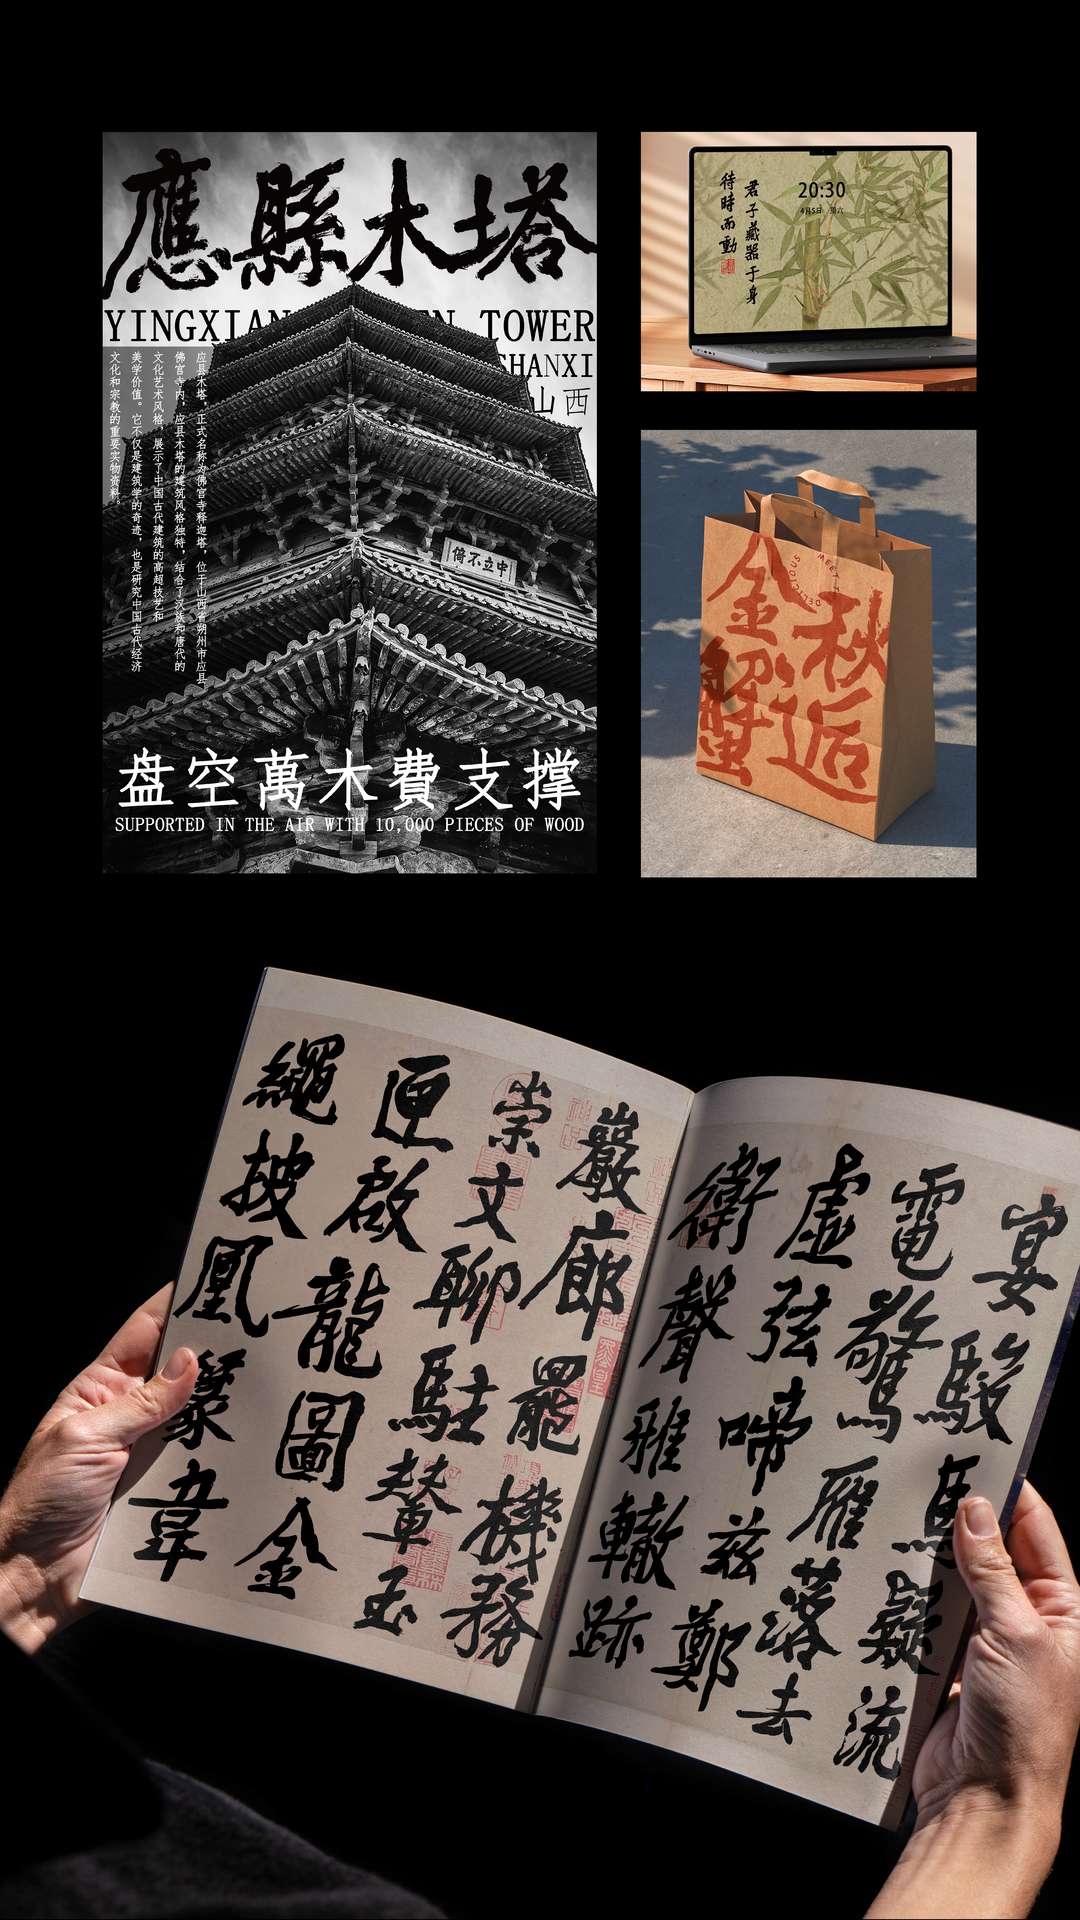 應縣木塔
YINGXIAN EN TOWER
SHANXI
山西
应县木塔，正式名称为佛宫寺释迦塔，位于山西省朔州市应县
佛宫寺内，应县木塔的建筑风格独特，结合了汉族和唐代的
文化艺术风格，展示了中国古代建筑的高超技艺和
美学价值。它不仅是建筑学的奇迹，也是研究中国古代经济
文化和宗教的重要实物资料。
中立不倚
盘空萬木費支撑
SUPPORTED IN THE AIR WITH 10,000 PIECES OF WOOD
20:30
4月5日 周六
君子藏器于身
待時而動
金秋
蟹逅
MEET
DELICIOUS
巖廊罷機務
崇文聊駐輦玉
匣啟龍圖金
繩披鳳篆韋
宴駿馬疑流
電驚雁落去
虛弦啼兹鄭
衛聲雅轍跡